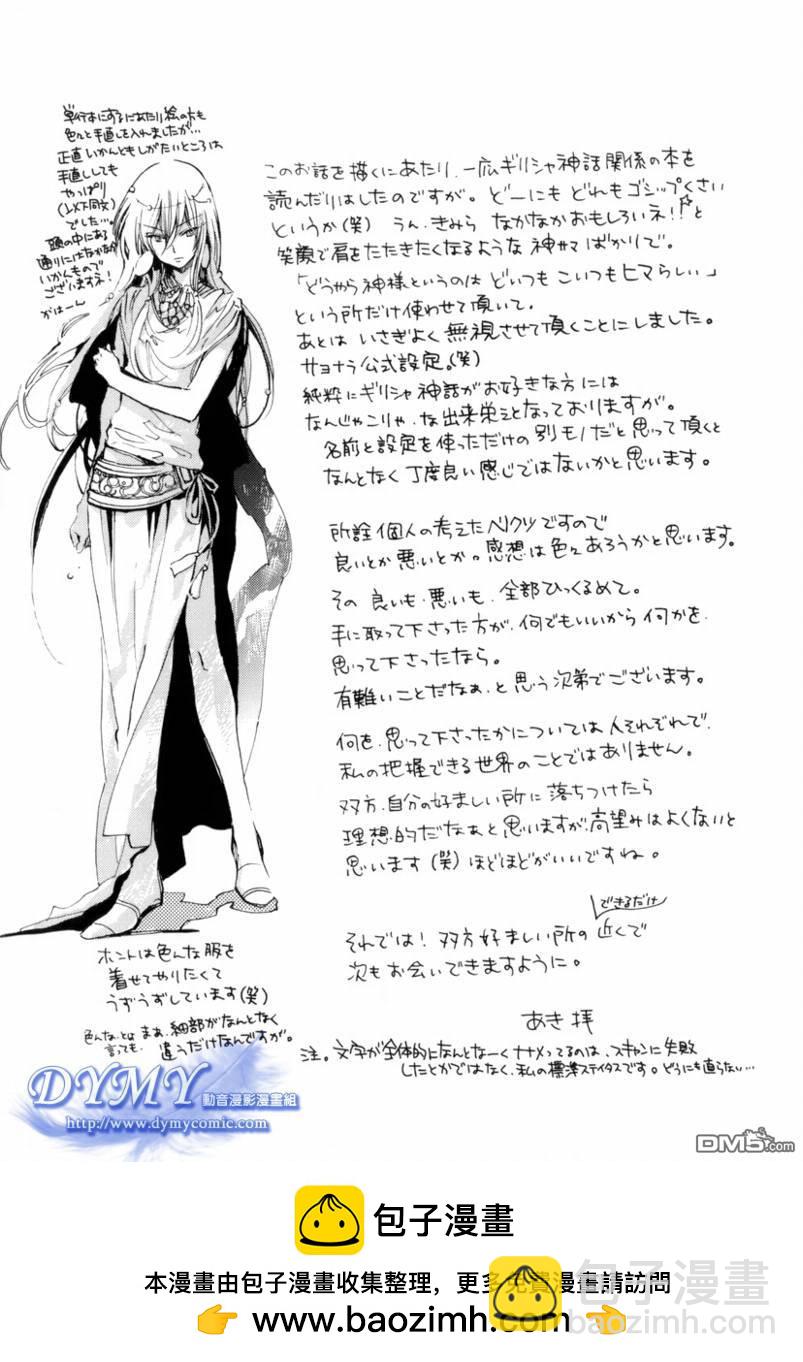 単行本にするにあたり絵の方も
色々と手直しを入れましたが…
正直いかんともしがたいところは
手直ししても
やっぱり
(以下同文)
でした…。
頭の中にある
通りにはなかなか
いかんもので
ございますネ!
がはーん
このお話を描くにあたり、一応ギリシャ神話関係の本を
読んだりはしたのですが。どーにも どれもゴシップくさい
というか(笑) うん、きみら なかなかおもしろいネ!!☆と
笑顔で肩をたたきたくなるような 神サマ ばかりで。
「どうやら神様というのは どいつも こいつも ヒマらしい」
という所だけ使わせて頂いて。
あとは いさぎよく 無視させて頂くことにしました。
サヨナラ公式設定。(笑)
純粋にギリシャ神話がお好きな方には
なんじゃこりゃ、な出来栄えとなっておりますが。
名前と設定を使っただけの 別モノだと思って頂くと
なんとなく丁度良い感じではないかと思います。
所詮個人の考えたヘリクツですので
良いとか悪いとか。感想は色々あろうかと思います。
その 良いも、悪いも、全部ひっくるめて。
手に取って下さった方が、何でもいいから 何かを、
思って下さったなら。
有難いことだなぁ、と思う次第でございます。
何を、思って下さったかについては人それぞれで、
私の把握できる世界のことではありません。
双方、自分の好ましい所に落ちつけたら
理想的だなぁと思いますが、高望みはよくないと
思います(笑) ほどほどがいいですね。
できるだけ
それでは! 双方好ましい所の 近くで
次もお会いできますように。
あき 拝
ホントは色んな服を
着せてやりたくて
うずうずしています(笑)
色んな、とは まぁ、細部がなんとなく
言っても、違うだけなんですが。
注。文字が全体的になんとなーくナナメってるのは、スキャンに失敗
したとかではなく、私の標準ステイタスです。どうにも直らない…
DYMY 動音漫影漫畫組
http://www.dymycomic.com
DM5.com
包子漫畫
本漫畫由包子漫畫收集整理，更多免費漫畫請訪問
👉 www.baozimh.com 👈
包子漫畫
baozimh.com